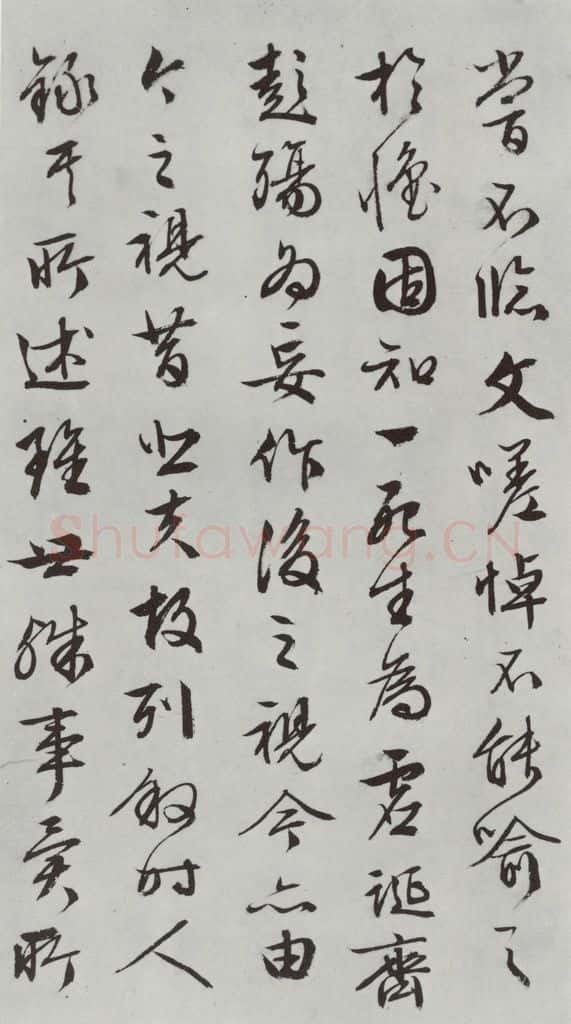 嘗不臨文嗟悼不能喻之
於懷固知一死生為虛誕齊
彭殤為妄作後之視今亦由
今之視昔悲夫故列敘時人
錄其所述雖世殊事異所
Shufawang.CN